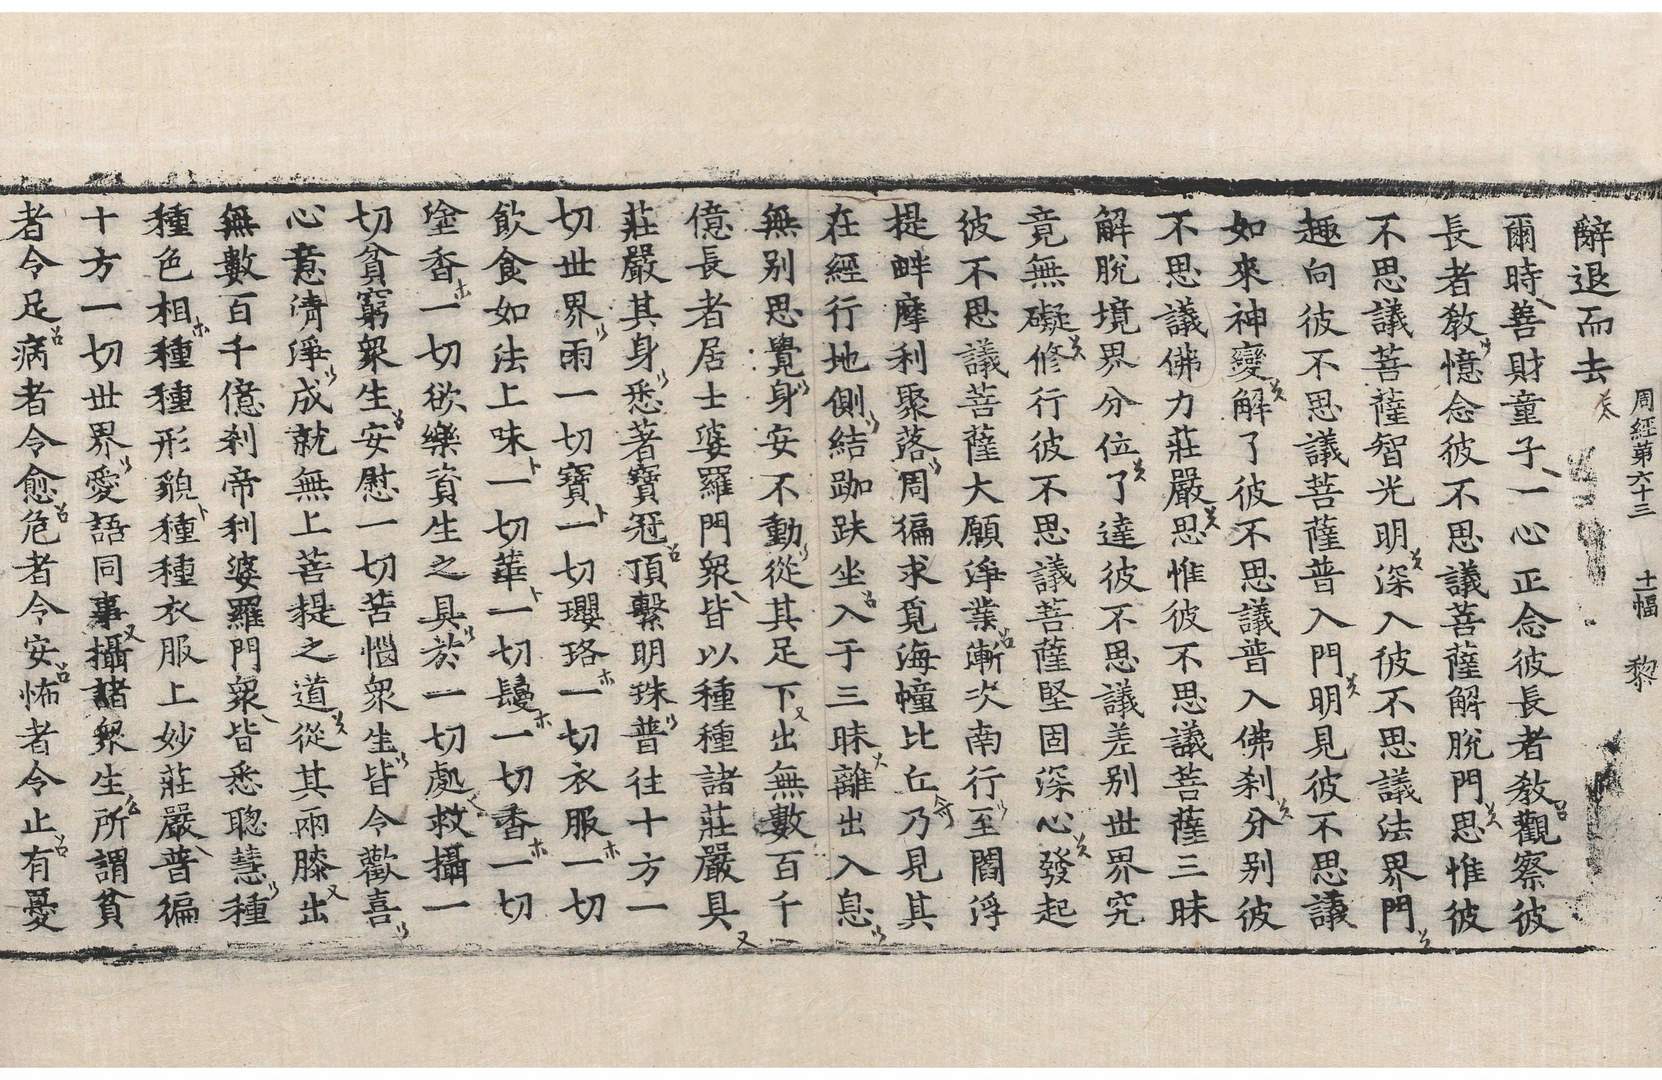 周經第六十三　十二幅　黎
辭退而去
爾時善財童子一心正念彼長者教觀察彼
長者教憶念彼不思議菩薩解脫門思惟彼
不思議菩薩智光明深入彼不思議法界門
趣向彼不思議菩薩普入門明見彼不思議
如來神變解了彼不思議普入佛刹分別彼
不思議佛力莊嚴思惟彼不思議菩薩三昧
解脫境界分位了達彼不思議差別世界究
竟無礙修行彼不思議菩薩堅固深心發起
彼不思議菩薩大願淨業漸次南行至閻浮
提畔摩利聚落周徧求覓海幢比丘乃見其
在經行地側結跏趺坐入于三昧離出入息
無別思覺身安不動從其足下出無數百千
億長者居士婆羅門衆皆以種種諸莊嚴具
莊嚴其身悉著寶冠頂繫明珠普往十方一
切世界雨一切寶一切瓔珞一切衣服一切
飲食如法上味一切華一切鬘一切香一切
塗香一切欲樂資生之具於一切處救攝一
切貧窮衆生安慰一切苦惱衆生皆令歡喜
心意清淨成就無上菩提之道從其兩膝出
無數百千億刹帝利婆羅門衆皆悉聰慧種
種色相種種形貌種種衣服上妙莊嚴普徧
十方一切世界愛語同事攝諸衆生所謂貧
者令足病者令愈危者令安怖者令止有憂